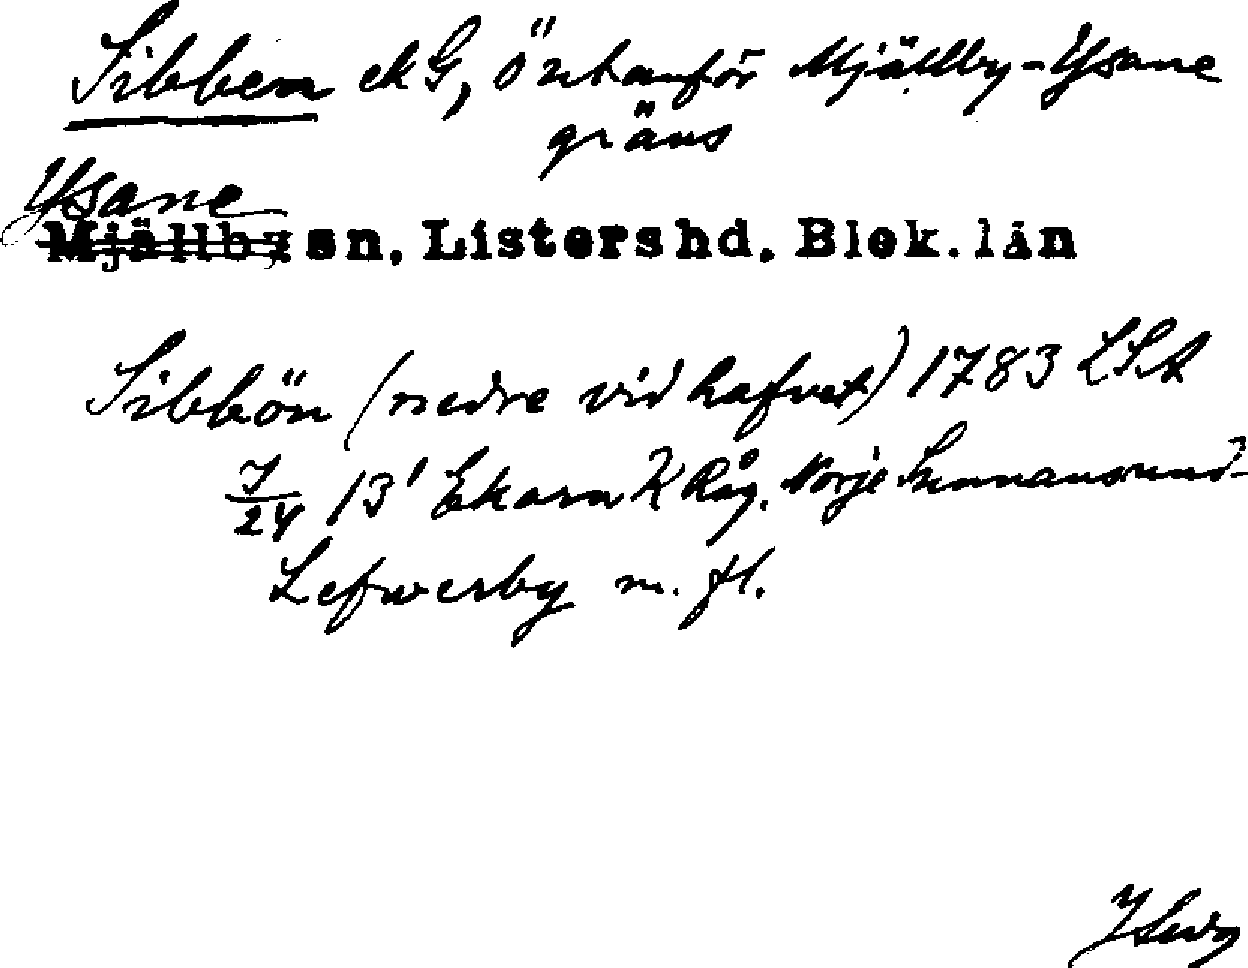 Sibben ekG, ö utanför Mjällby-Ysane
gräns
Ysane
Mjällby sn, Listers hd, Blek. län
Sibbön (nedre vid hafvet) 1783 LSA
7/24 13' Ekorn K Råg. Norje Sunnansund-
Lefwerby m. fl.